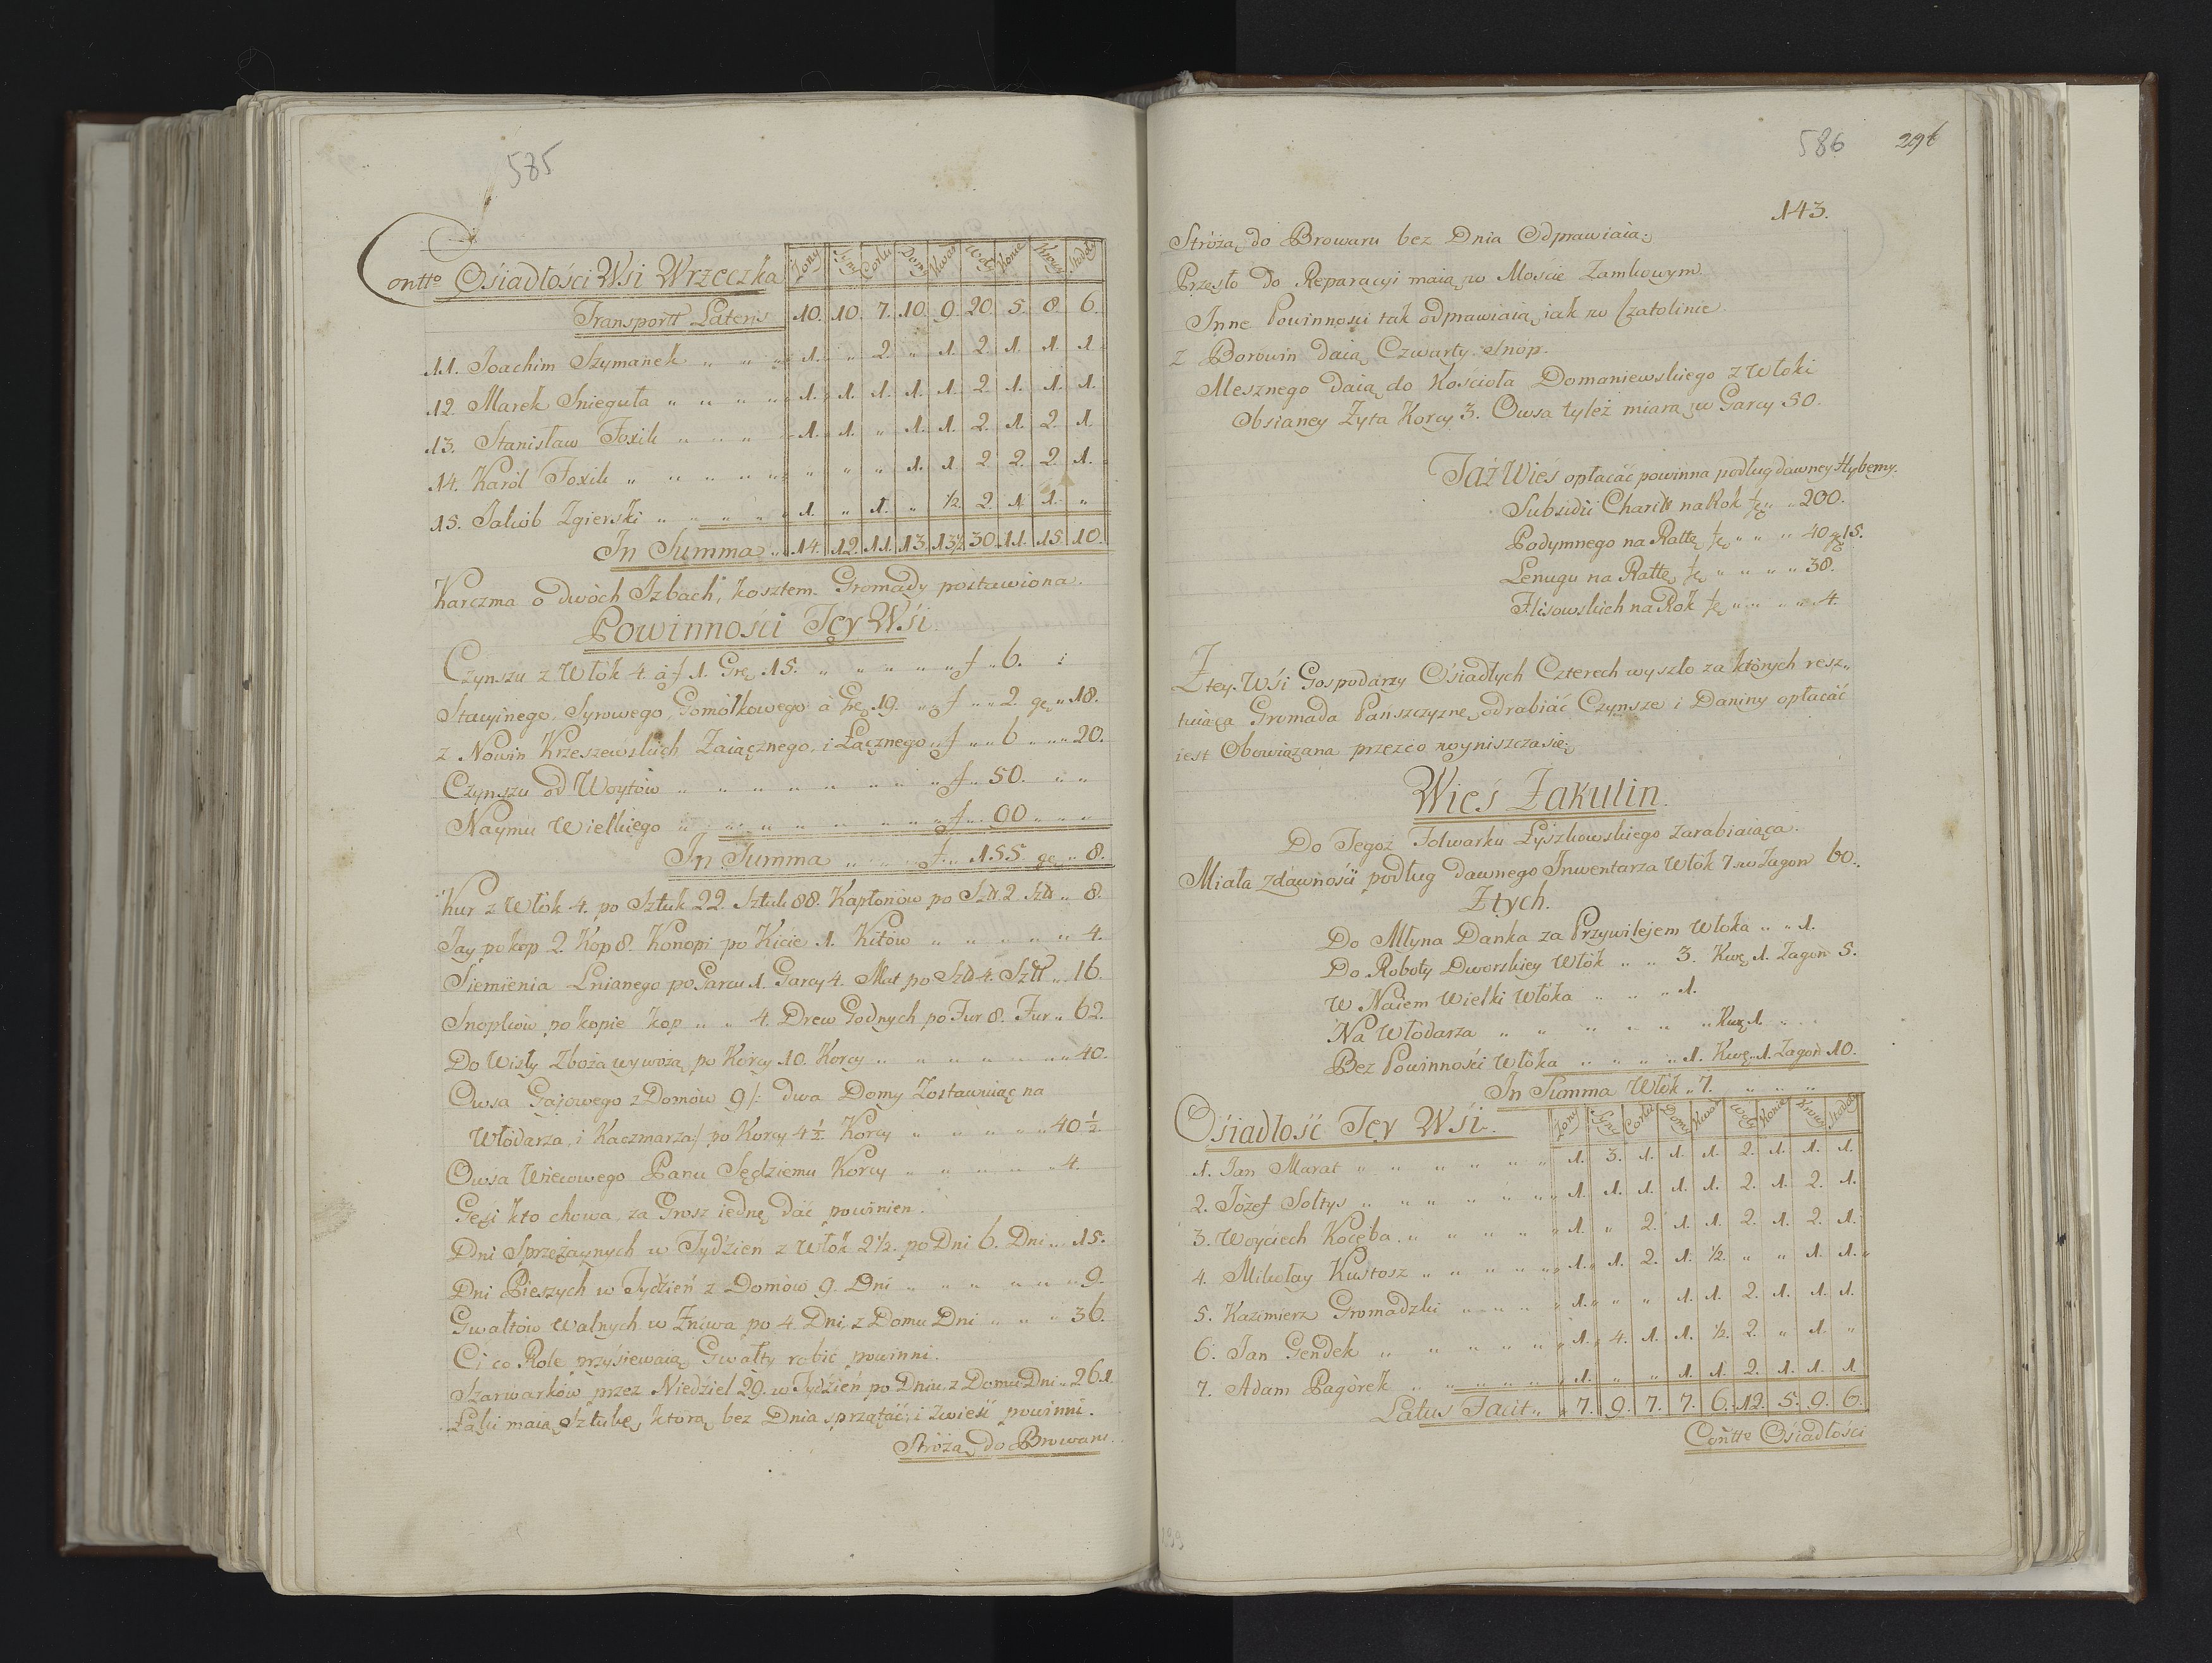 585
Contto Osiadłości Wsi Wrzeczka Żony Syny Corki Domy Kwar Woły Konie Krowy Stodoły
Transportt Lateris 10. 10. 7. 10. 9. 20. 5. 8. 6.
11. Joachim Szymanek „ „ „ 1. „ 2. „ 1. 2. 1. 1. 1.
12. Marek Snieguła „ „ „ „ 1. 1. 1. 1. 1. 2. 1. 1. 1.
13. Stanisław Foxik „ „ „ 1. 1. „ 1. 1. 2. 1. 2. 1.
14. Karol Foxik „ „ „ „ „ „ „ „ 1. 1. 2. 2. 2. 1.
15. Jakob Zgierski „ „ „ „ „ 1. „ 1. „ ½. 2. 1. 1. „
In Summa „ 14. 12. 11. 13. 13½ 30. 11. 15. 10.
Karczma o dwóch Izbach, kosztem Gromady postawiona.
Powinności Tey Wsi
Czynszu z Włók 4. à f 1. Grę 15. „ „ „ „ „ f „ 6. :
Stacyinego, Syrowego, Gomółkowego à Grę 19. „ f „ „ 2. gę „ 18.
z Nowin Krzeszewskich Zaiącznego, i Łącznego „ f „ „ 6 „ „ „ 20.
Czynszu od Woytów „ „ „ „ „ „ „ „ „ f „ 50. „ „
Naymu Wielkiego „ „ „ „ „ „ „ „ „ f „ 90 „ „ „
In Summa „ „ „ f „ 155. gę „ 8.
Kur z Włók 4. po Sztuk 22. Sztuk 88. Kapłonów po Szt. 2. Szt „ 8.
Jay po kop 2. Kop 8. Konopi po Kicie 1. Kitów „ „ „ „ „ 4.
Siemienia Lnianego po Garcu 1. Garcy 4. Mat po Szt 4. Szt „ 16.
Snopków po kopie kop „ „ 4. Drew Godnych po Fur 8. Fur „ 62.
Do Wisły Zboża wywożą po Korcy 10. Korcy „ „ „ „ „ „ 40.
Owsa Gajowego z Domów 9 /: dwa Domy Zostawuiąc na
Włodarza, i Kaczmarza:/ po Korcy 4½. Korcy „ „ „ „ „ 40½.
Owsa Wiecowego Panu Sędziemu Korcy „ „ „ „ „ 4.
Gęsi kto chowa, za Grosz iednę dać powinien.
Dni Sprzężaynych w Tydzień z Włók 2½. po Dni 6. Dni „ 15.
Dni Pieszych w Tydzień z Domów 9. Dni „ „ „ „ „ 9.
Gwałtów Walnych w Żniwa po 4. Dni z Domu Dni „ „ „ 36.
Ci co Role przysiewaią Gwałty robić powinni.
Szarwarków przez Niedziel 29. w Tydzień po Dniu z Domu Dni „ 261.
Łąki maią Sztukę, ktorą bez Dnia sprzątać, i zwieść powinni.
Stróżą do Browaru
586 296
143.
Stróżą do Browaru bez Dnia Odprawiaią.
Przęsło do Reparacyi maią w Moście Zamkowym.
Inne Powinności tak odprawiaią, iak w Czatolinie.
Z Borowin daią Czwarty Snop.
Mesznego daią do Kościoła Domaniewskiego z Włoki
Obsianey Żyta Korcy 3. Owsa tyleż miarą w Garcy 50.
Taż Wieś opłacać powinna podług dawney Hybemy.
Subsidii Charitt na Rok fę „ „ 200.
Podymnego na Rattę fę „ „ „ 40 gę 15.
Lenugu na Rattę fę „ „ „ „ 38.
Flisowskich na Rok fę „ „ „ „ 4.
Z tey Wsi Gospodarzy Osiadłych Czterech wyszło za których resz„
tuiąca Gromada Pańszczyznę odrabiać Czynsze i Daniny opłacać
iest Obowiązana przezco wyniszcza się.
Wieś Łakulin.
Do Tegoż Folwarku Łyszkowskiego Zarabiaiąca.
Miała z dawności podług dawnego Inwentarza Włók 7. w Zagon 60.
Z tych.
Do Młyna Danka za Przywilejem Włoka „ „ 1.
Do Roboty Dworskiey Włók „ „ 3. Kwę 1. Zagon 5.
W Naiem Wielki Włoka „ „ „ 1.
Na Włodarza „ „ „ „ „ „ Kwę 1. „ „
Bez Powinności Włóka „ „ „ „ 1. Kwę „ 1. Zagon 10.
In Summa Włók „ 7. „ „ „
Osiadłość Tey Wsi. Żony Syny Corki Domy Kwar Woły Konie Krowy Stodoły
1. Jan Marat „ „ „ „ „ „ 1. 3. 1. 1. 1. 2. 1. 1. 1.
2. Józef Sołtys „ „ „ „ „ „ 1. 1. 1. 1. 1. 2. 1. 2. 1.
3. Woyciech Kocęba „ „ „ „ „ 1. „ 2. 1. 1. 2. 1. 2. 1.
4. Mikołay Kustosz „ „ „ „ „ 1. 1. 2. 1. ½. „ „ 1. 1.
5. Kazimierz Gromadzki „ „ „ „ 1. „ „ 1. 1. 2. 1. 1. 1.
6. Jan Gendek „ „ „ „ „ „ 1. 4. 1. 1. ½. 2. „ 1. „
7. Adam Pagórek „ „ „ „ „ 1. „ „ 1. 1. 2. 1. 1. 1.
Latus Facit „ 7. 9. 7. 7. 6. 12. 5. 9. 6.
Contto Osiadłości